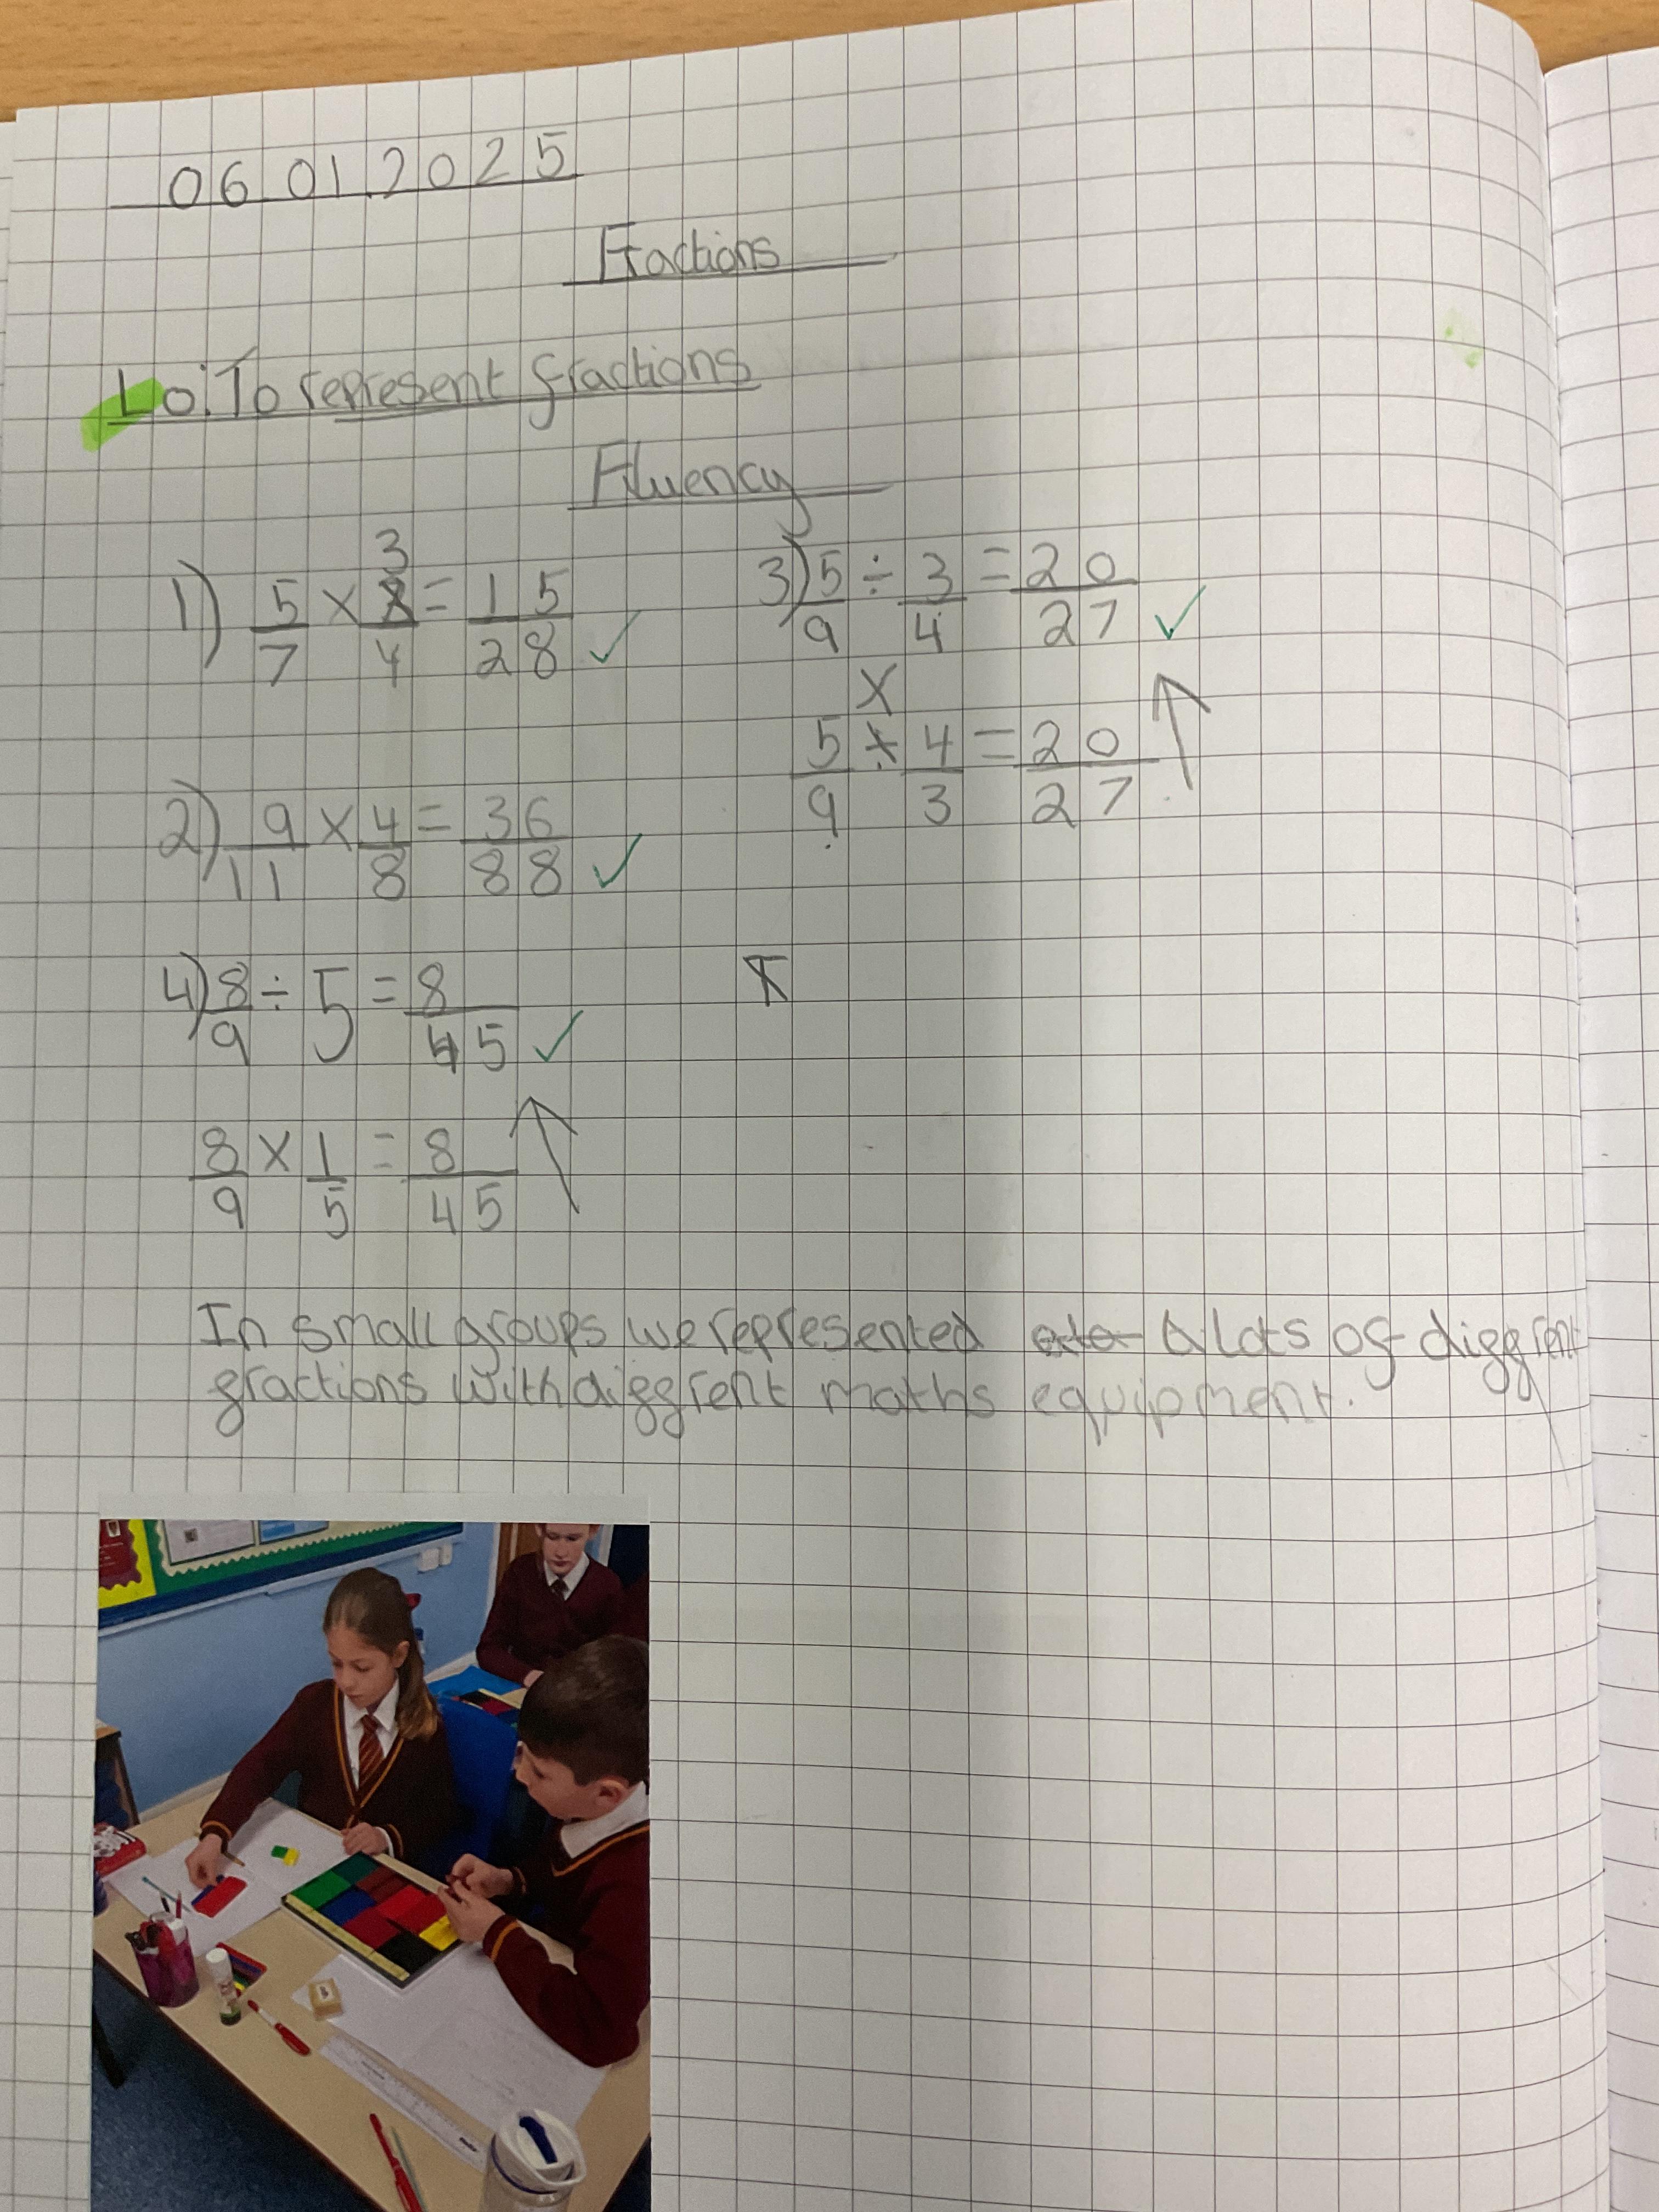 06.01.2025
Fractions
Lo: To represent fractions
Fluency
1) 5/7 × 3/4 = 15/28 ✓
3) 5/9 ÷ 3/4 = 20/27 ✓
×
5/9 ÷ 4/3 = 20/27
2) 9/11 × 4/8 = 36/88 ✓
4) 8/9 ÷ 5 = 8/45 ✓
8/9 × 1/5 = 8/45
In small groups we represented a lots of diffrent
fractions with diffrent maths equipment.